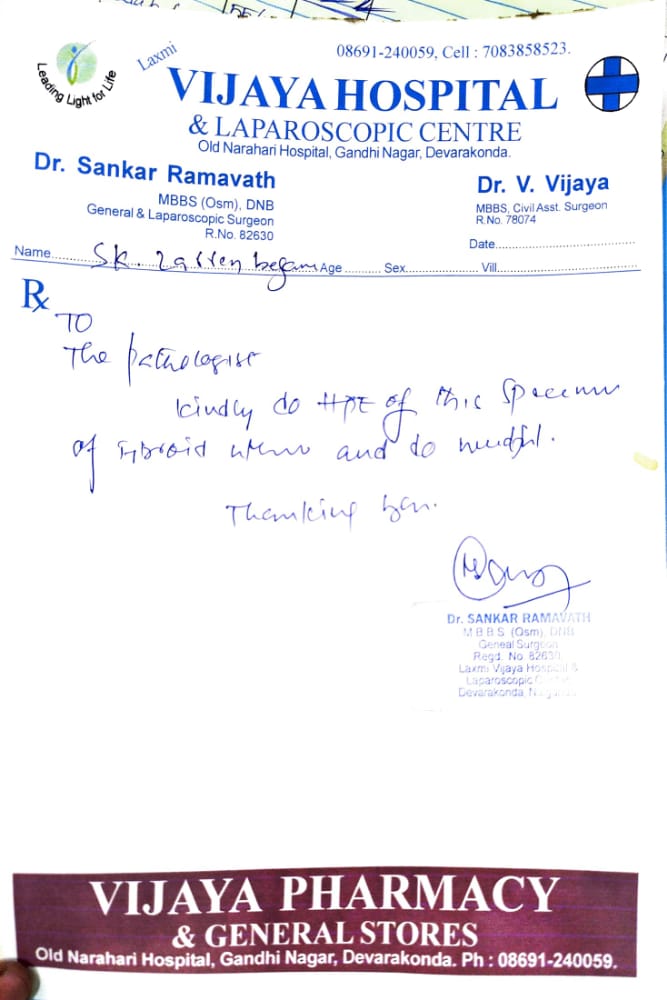 Leading Light for Life
Laxmi
08691-240059, Cell : 7083858523.
VIJAYA HOSPITAL
& LAPAROSCOPIC CENTRE
Old Narahari Hospital, Gandhi Nagar, Devarakonda.
Dr. Sankar Ramavath
MBBS (Osm), DNB
General & Laparoscopic Surgeon
R.No. 82630
Dr. V. Vijaya
MBBS, Civil Asst. Surgeon
R.No. 78074
Date
Name SK. begam Age Sex Vill
Rx
TO
The pathologist
kindly do HPE of this specimen
of fibroid uterus and do needful.
Thanking you.
Dr. SANKAR RAMAVATH
M B B S (Osm), DNB
Geneal Surgeon
Regd. No. 82630
Laxmi Vijaya Hospital &
Laparoscopic
Devarakonda,
VIJAYA PHARMACY
& GENERAL STORES
Old Narahari Hospital, Gandhi Nagar, Devarakonda. Ph : 08691-240059.